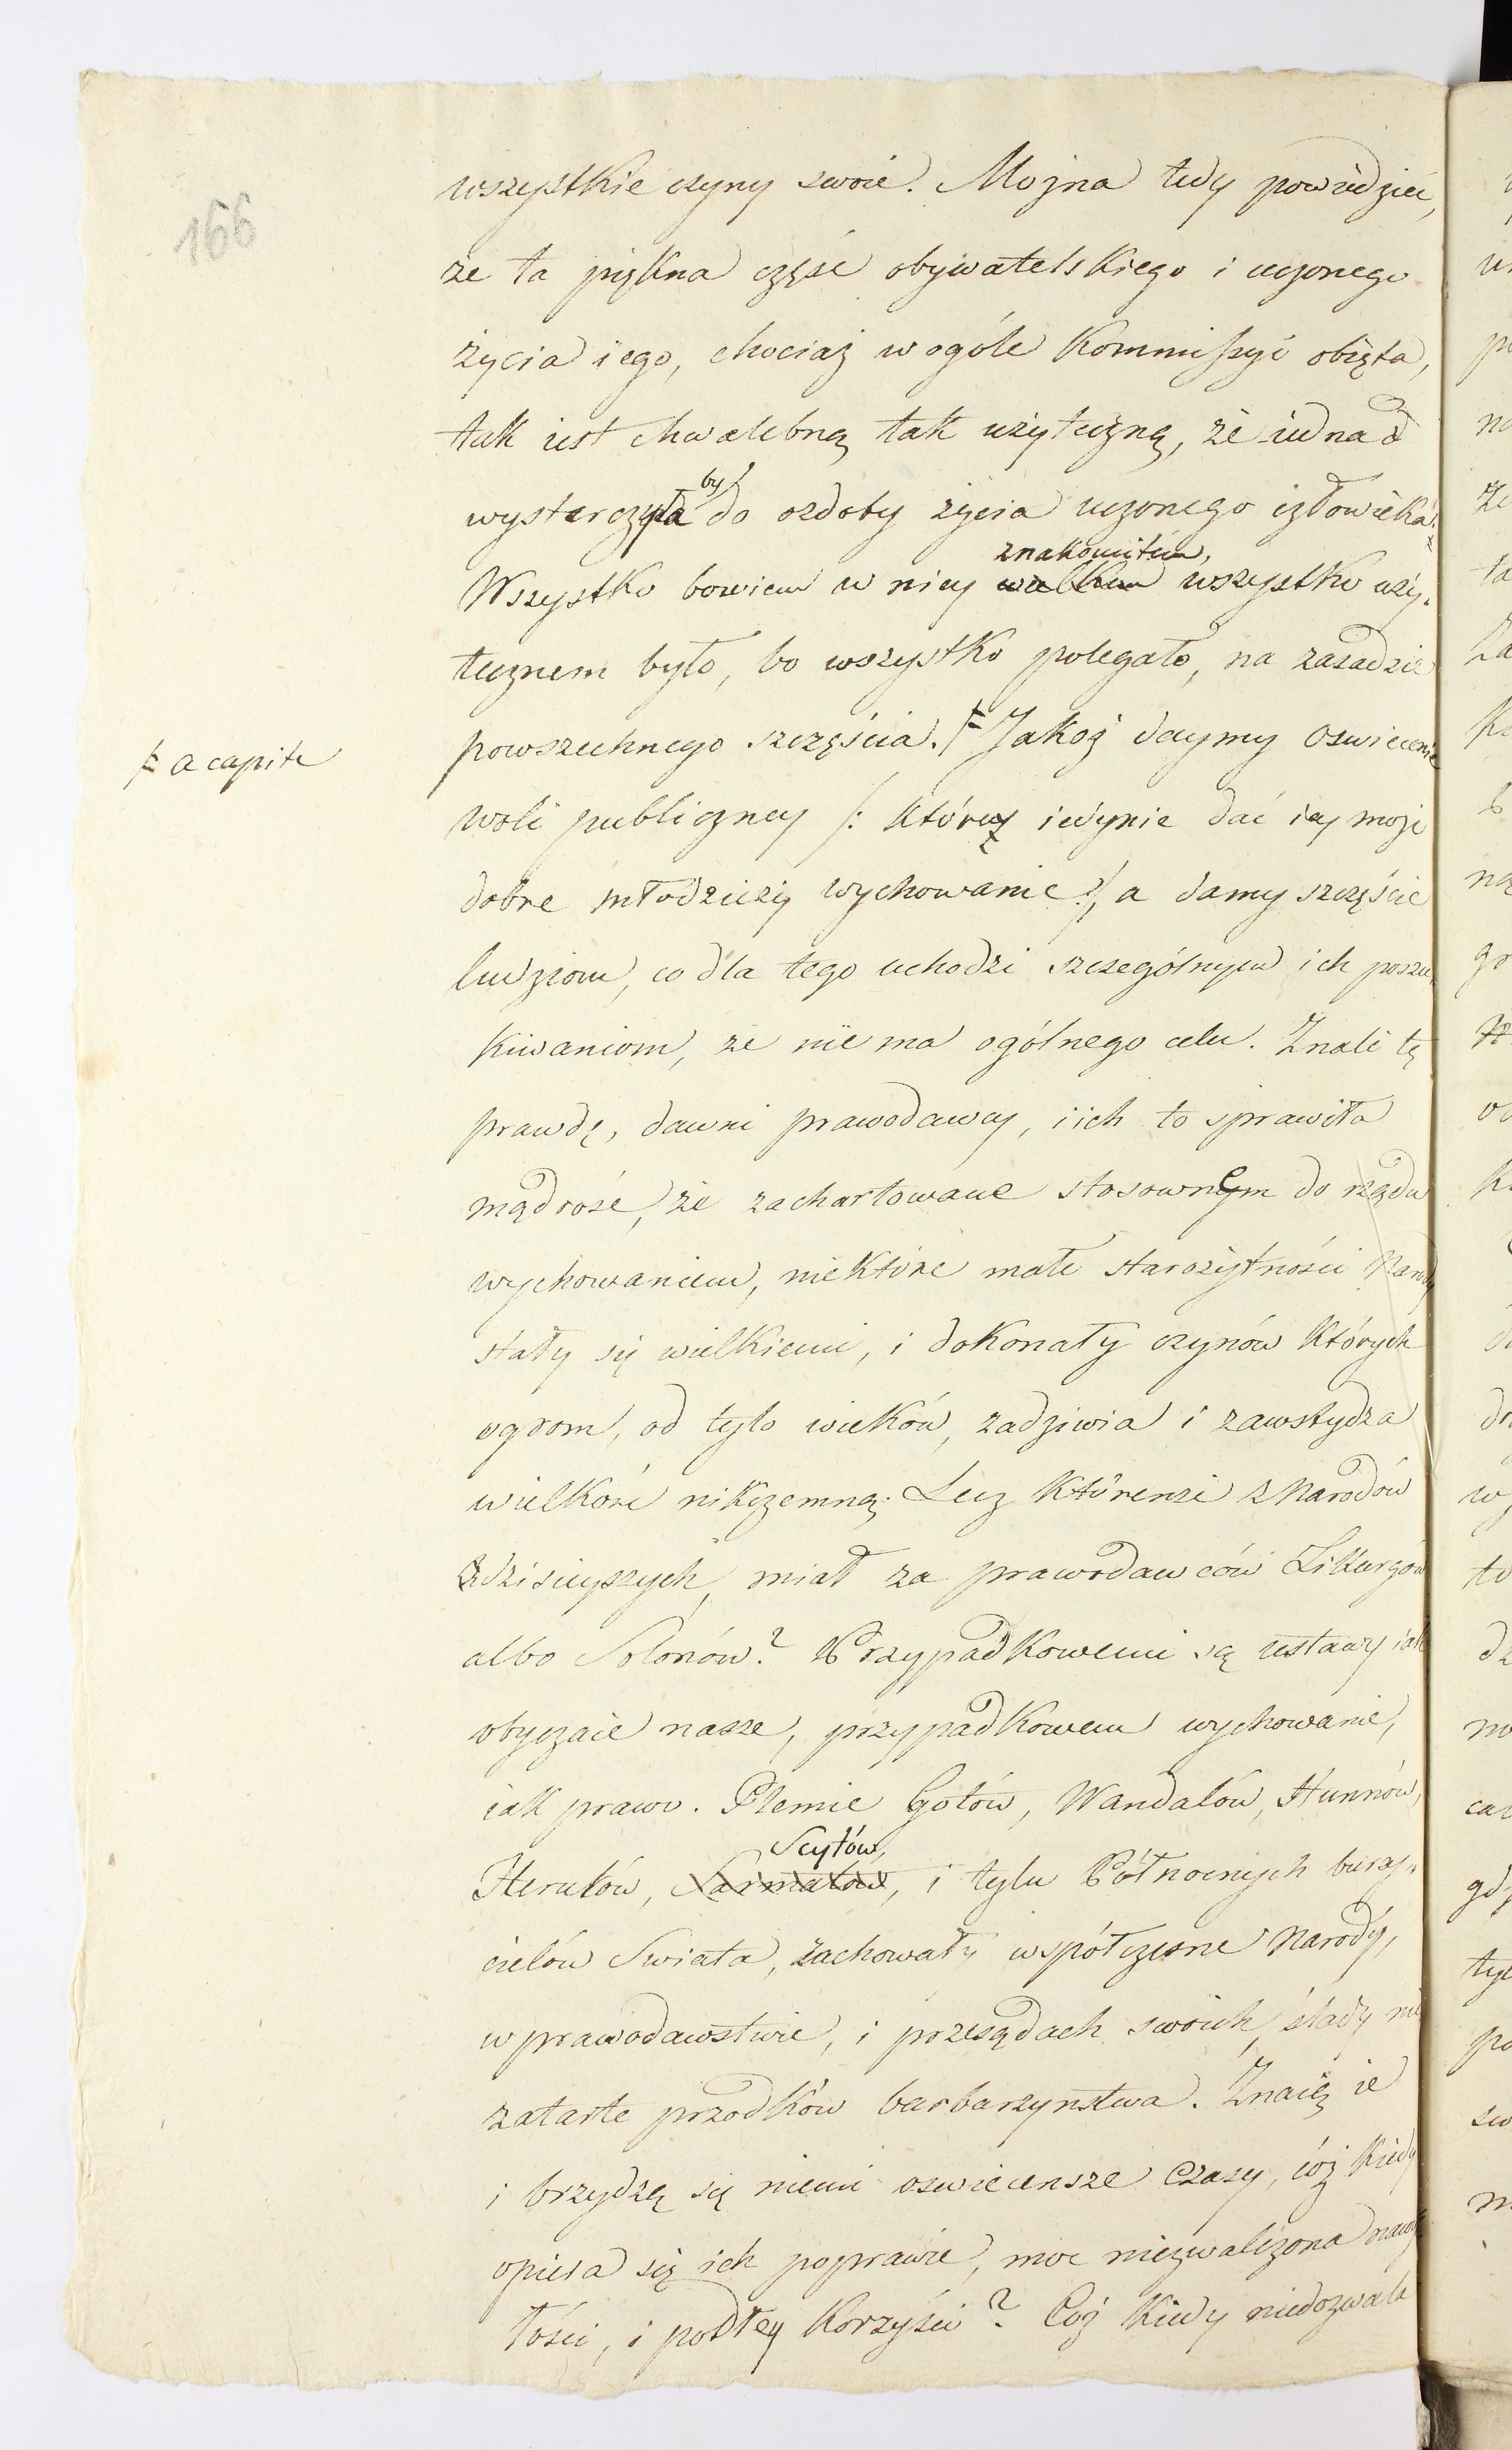 166
wszystkie czyny swoie. Mojna tedy powiedzieć,
że ta piękna część obywatelskiego i uczonego
życia iego, chociaż w ogóle Kommissyi obięta,
tak iest chwalebną tak użyteczną, że iedna
by
wystarczyła do ozdoby życia uczonego człowieka.
znakomitem,
Wszystko bowiem w niey wielkiem wszystko uży-
tecznem było, bo wszystko polegało, na zasadzie
powszechnego szczęścia. Jakoż daymy oswiecenie
a capite
woli publiczney /: które iedynie dać iey może
dobre młodzieży wychowanie :/, a damy szczęście
ludziom, co dla tego uchodzi szczególnym ich poszu-
kiwaniom, że nie ma ogólnego celu. Znali tę
prawdę, dawni prawodawcy, i ich to sprawiła
mądrość, że zachartowane stosownem do rządu
wychowaniem, niektóre małe starożytności Narody
stały się wielkiemi, i dokonały czynów których
ogrom, od tylo wieków, zadziwia i zawstydza
wielkość nikczemną. Lecz którenże z Narodów
dzisieyszych, miał za prawodawców Likurgów
albo Solonów? Przypadkowemi są ustawy iak
obyczaie nasze, przypadkowem wychowanie,
iak prawo. Plemie Gotów, Wandalów, Hunnów,
Scytów,
Herulów, Sarmatów, i tylu Północnych burzy-
cielów Swiata, zachowały współczesne Narody,
w prawodawstwie, i przesądach swoich, ślady nie
zatarte przodków barbarzynstwa. Znaią ie
i brzydzą się niemi oswiecensze czasy, cóż kiedy
opiera się ich poprawie, moc niezwalczona nawy
łości, i podłey korzyści? Cóż kiedy niedozwala